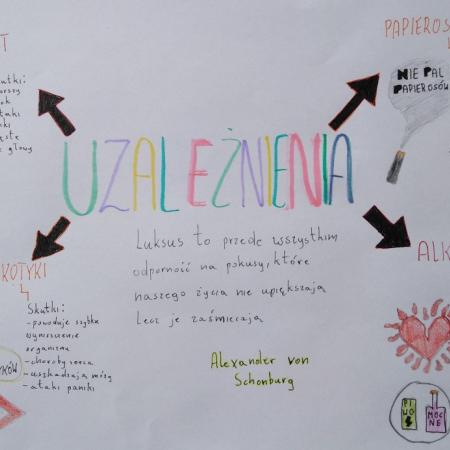 PAPIEROS
NIE PAL
PAPIEROSÓW
UZALEŻNIENIA
Luksus to przede wszystkim
odporność na pokusy, które
naszego życia nie upiększają
Lecz je zaśmiecają
Alexander von
Schonburg
KOTYKI
Skutki:
- powoduje szybkie
wyniszczenie
organizmu
- choroby serca
- uszkadzają mózg
- ataki paniki
ALK
PIWO
MOCNE